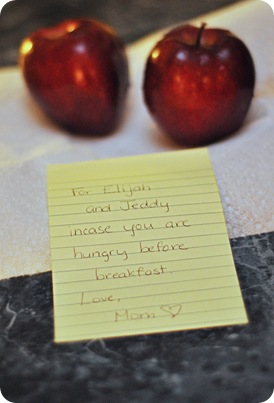 For Elijah
and Jeddy
incase you are
hungry before
breakfast.
Love,
Mom ♡